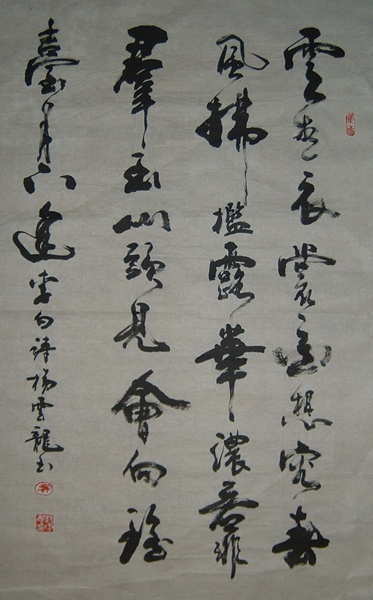 雲想衣裳花想容春
風拂檻露華濃若非
羣玉山頭見會向瑤
臺月下逢李白詩楊雲龍書